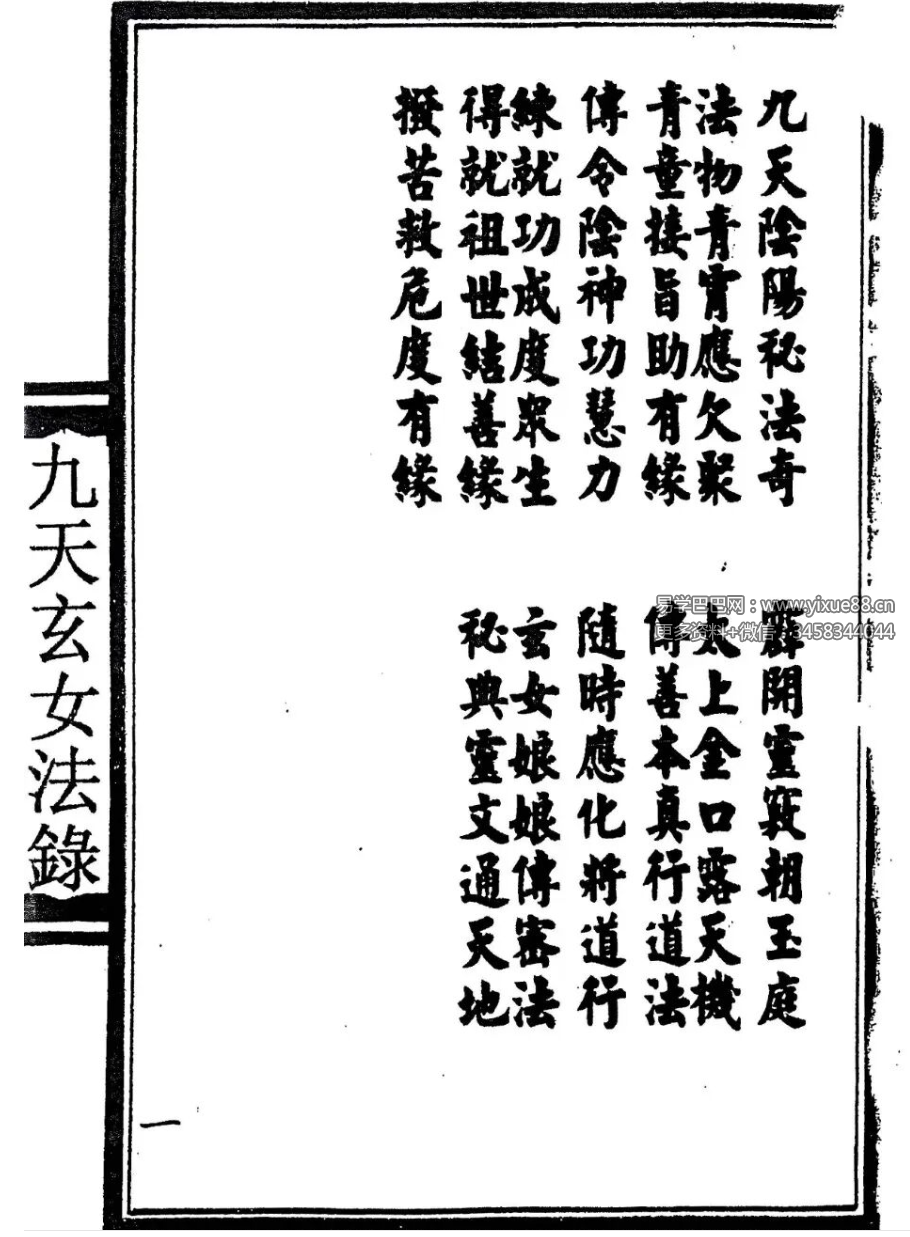 九天陰陽秘法奇 霹開靈竅朝玉庭
法物青霄應欠聚 太上金口露天機
青童接旨助有緣 傳善本真行道法
傳令陰神功慧力 隨時應化將道行
練就功成度眾生 玄女娘娘傳密法
得就祖世結善緣 秘典靈文通天地
撥苦救危度有緣
九天玄女法錄
一
易学巴巴网：www.yixue88.cn
更多资料+微信：3458344044